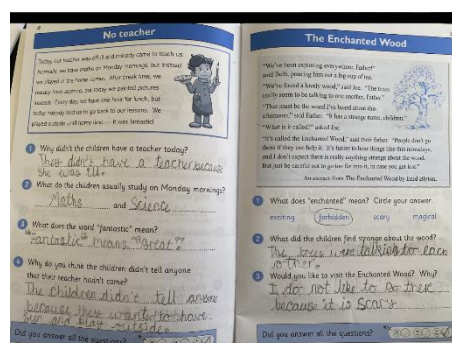 No teacher
Today, our teacher was off ill and nobody came to teach us.
Normally, we have maths on Monday mornings, but instead
we played in the home corner. After break time, we
usually have science, but today we painted pictures
instead. Every day, we have one hour for lunch, but
today nobody told us to go back to our lessons. We
played outside until home time — it was fantastic!
1 Why didn't the children have a teacher today?
They didn't have a teacher because
she was ill.
2 What do the children usually study on Monday mornings?
Maths and Science
3 What does the word "fantastic" mean?
"Fantastic" means "great".
4 Why do you think the children didn't tell anyone
that their teacher hadn't come?
The children didn't tell anyone
because they wanted to have
fun and play outside.
Did you answer all the questions?
The Enchanted Wood
"We've been exploring everywhere, Father!"
said Beth, pouring him out a big cup of tea.
"We've found a lovely wood," said Joe. "The trees
really seem to be talking to one another, Father."
"That must be the wood I've heard about this
afternoon," said Father. "It has a strange name, children."
"What is it called?" asked Joe.
"It's called the Enchanted Wood," said their father. "People don't go
there if they can help it. It's funny to hear things like this nowadays,
and I don't expect there is really anything strange about the wood.
But just be careful not to go too far into it, in case you get lost."
An extract from The Enchanted Wood by Enid Blyton.
1 What does "enchanted" mean? Circle your answer.
exciting forbidden scary magical
2 What did the children find strange about the wood?
The trees were talking to each
other.
3 Would you like to visit the Enchanted Wood? Why?
I do not like to go there
because it is scary
Did you answer all the questions?